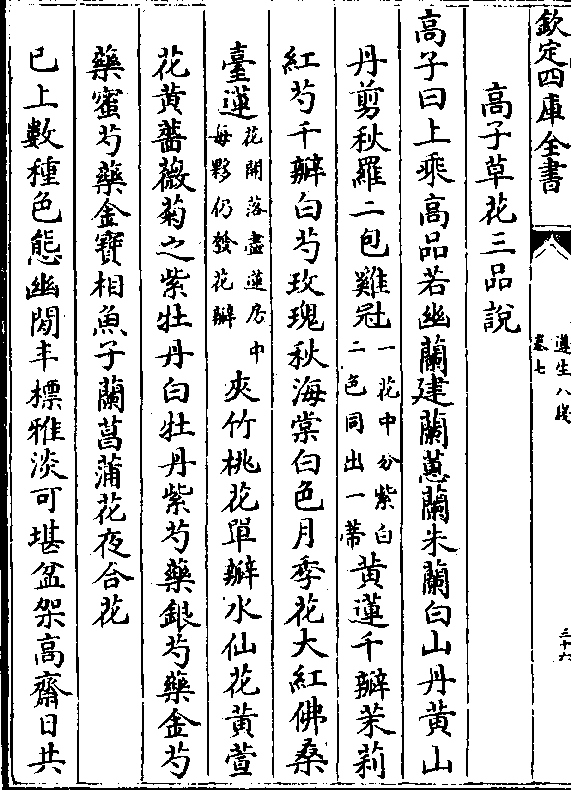 欽定四庫全書
遵生八牋
卷七
三十六
高子草花三品說
高子曰上乘高品若幽蘭建蘭蕙蘭朱蘭白山丹黃山
丹剪秋羅二包雞冠一花中分紫白二色同出一蒂黃蓮千瓣茉莉
紅芍千瓣白芍玫瑰秋海棠白色月季花大紅佛桑
臺蓮花開落盡蓮房中每夥仍發花瓣夾竹桃花單瓣水仙花黃萱
花黃薔薇菊之紫牡丹白牡丹紫芍藥銀芍藥金芍
藥蜜芍藥金寶相魚子蘭菖蒲花夜合花
已上數種色態幽閒丰標雅淡可堪盆架高齋日共